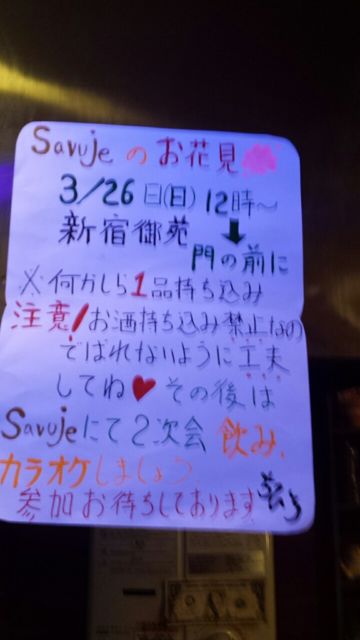 Savuje の お花見
3/26 日(日) 12時～
新宿御苑
門の前に
※何かしら1品持ち込み
注意！お酒持ち込み禁止なの
でばれないように工夫
してね♥ その後は
Savujeにて2次会 飲み、
カラオケしましょう
参加お待ちしております